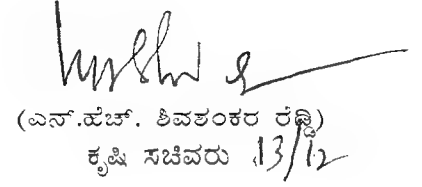 (ಎನ್.ಹೆಚ್. ಶಿವಶಂಕರ ರೆಡ್ಡಿ)
ಕೃಷಿ ಸಚಿವರು 13/12